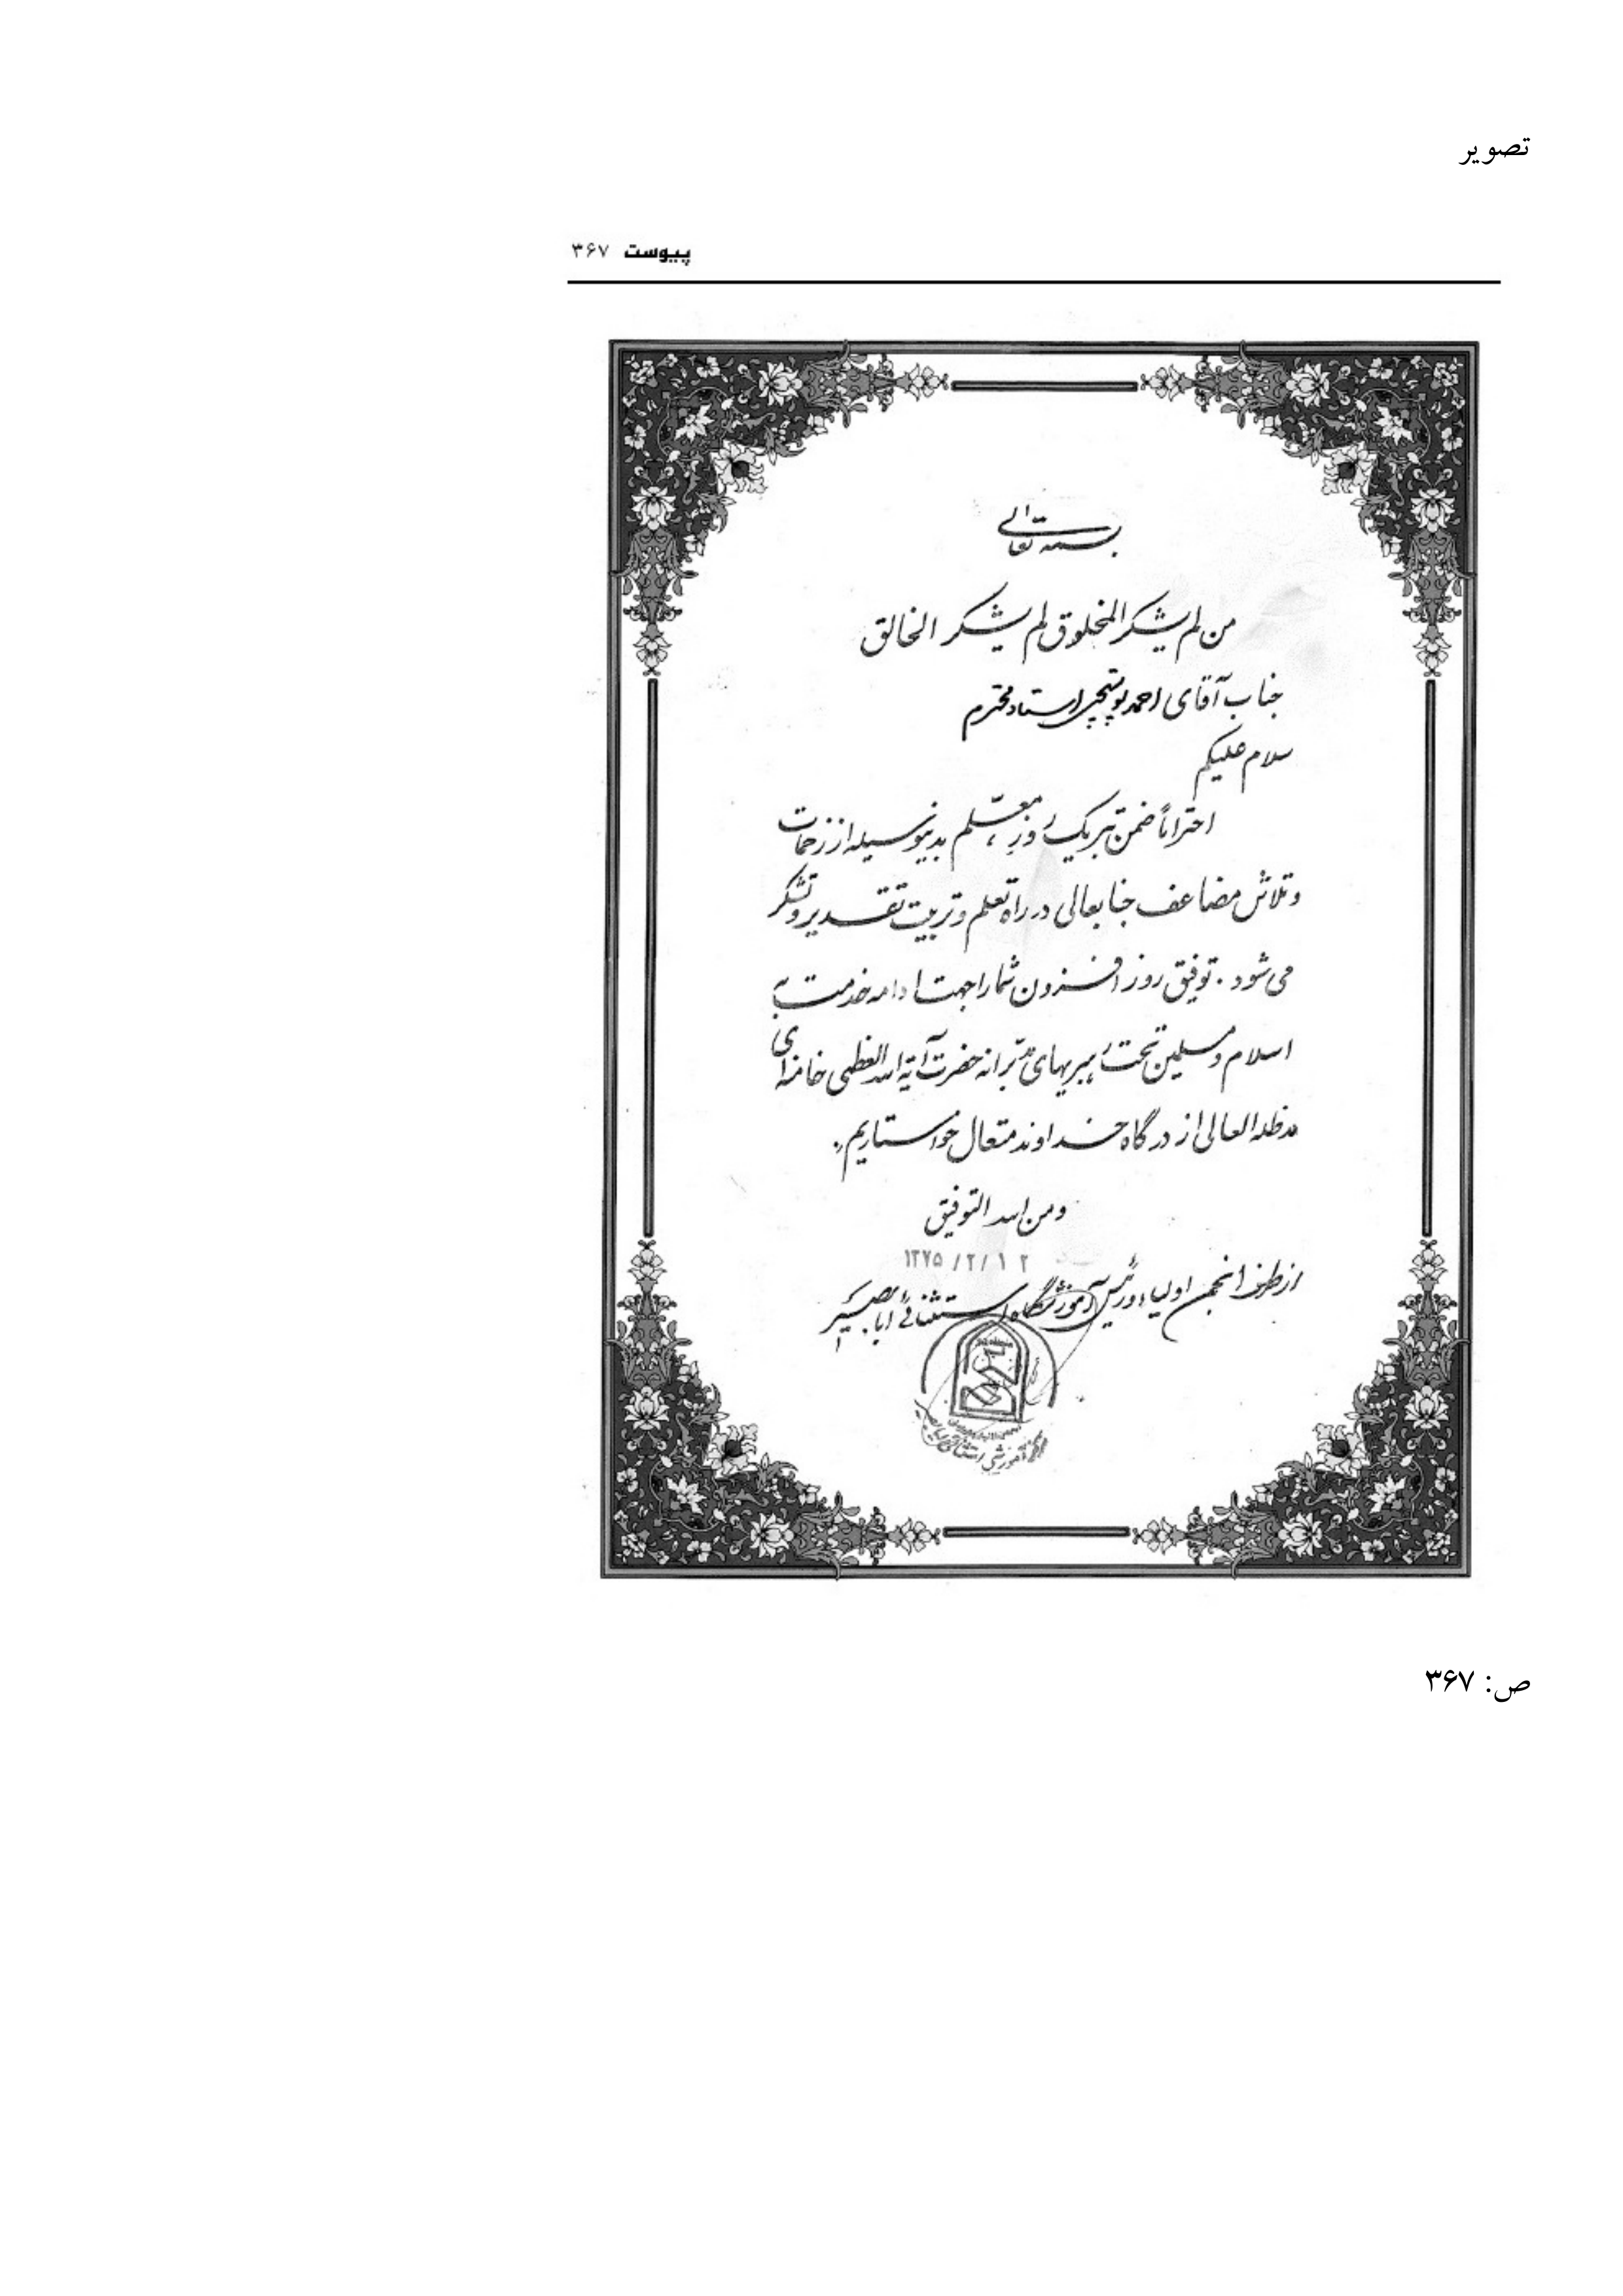 تصویر
پیوست ۳۶۷
بسمه تعالی
من لم یشکر المخلوق لم یشکر الخالق
جناب آقای احمد پوستچی استاد محترم
سلام علیکم
احتراماً ضمن تبریک روز معلّم بدینوسیله از زحمات
و تلاش مضاعف جنابعالی در راه تعلم و تربیت تقدیر و تشکر
می شود. توفیق روز افزون شما را جهت ادامه خدمت به
اسلام و مسلمین تحت رهبریهای مدبّرانه حضرت آیة الله العظمی خامنه ای
مدظله العالی از درگاه خداوند متعال خواستاریم.
و من الله التوفیق
۱۳۷۵/۲/۱۲
از طرف انجمن اولیاء و رئیس آموزشگاه استثنائی ابابصیر
ص: ۳۶۷